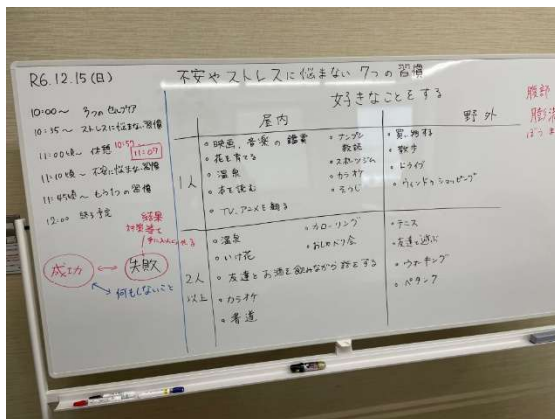 R6.12.15(日)
不安やストレスに悩まない 7つの習慣
好きなことをする
10:00～ 3つのセルフケア
10:35～ ストレスに悩まない習慣
11:00頃～ 休憩 10:57
11:07
11:10頃～ 不安に悩まない習慣
11:45頃～ もう1つの習慣
12:00 終了予定
結果
対策等て
手に入れられる
成功
失敗
何もしないこと
屋内
野外
1人
・映画、音楽の鑑賞
・花を育てる
・温泉
・本を読む
・TV、アニメを観る
・ナンプレ
教読
・スポーツジム
・カラオケ
・買い物する
・散歩
・ドライブ
・ウィンドウショッピング
2人
以上
・温泉
・いけ花
・友達とお酒を飲みながら話をする
・カラオケ
・書道
・カローリング
・おしゃべり会
・テニス
・友達と遊ぶ
・ウォーキング
・ペタンク
腹部
膨満